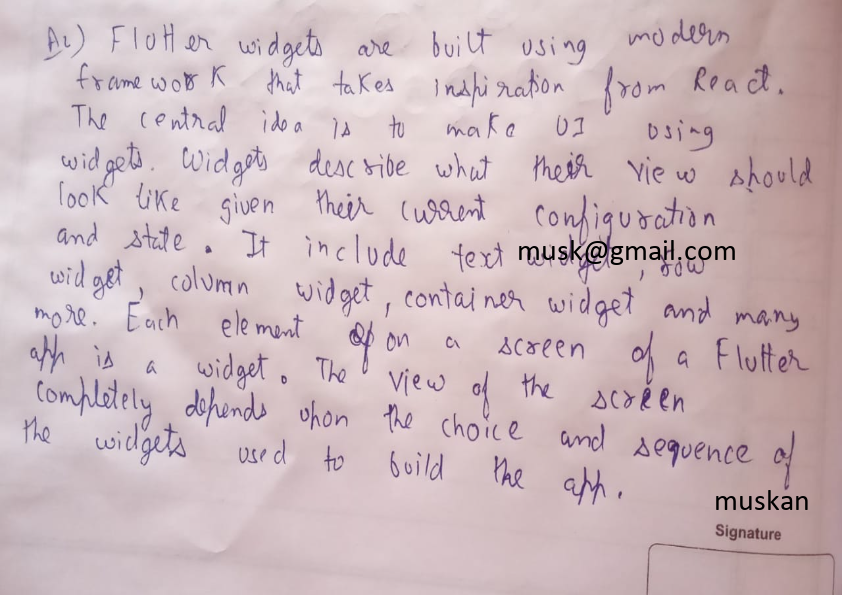 A2) Flutter widgets are built using modern
framework that takes inspiration from React.
The central idea is to make UI using
widgets. Widgets describe what their view should
look like given their current configuration
and state. It include text widget, row
musk@gmail.com
widget, column widget, container widget and many
more. Each element of on a screen of a Flutter
app is a widget. The view of the screen
completely depends upon the choice and sequence of
the widgets used to build the app.
muskan
Signature